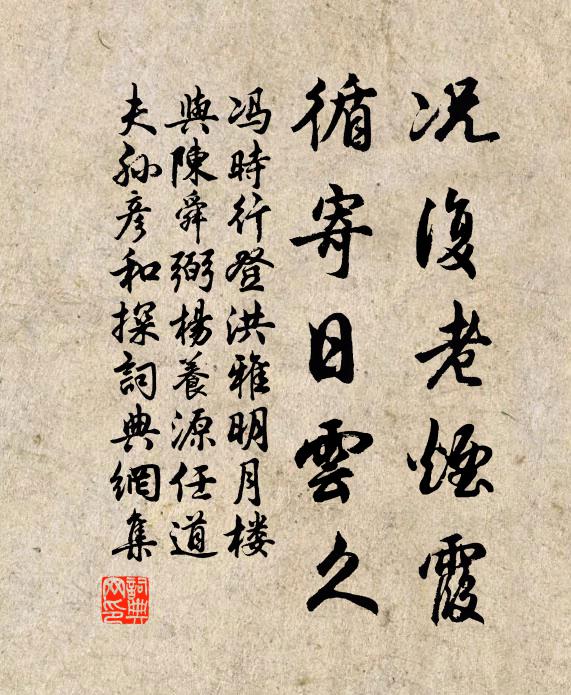 况復老煙霞
循寄日雲久
冯時行登洪雅明月楼
與陳舜弼楊養源任道
夫孙彦和探詞典網集
詞典网印